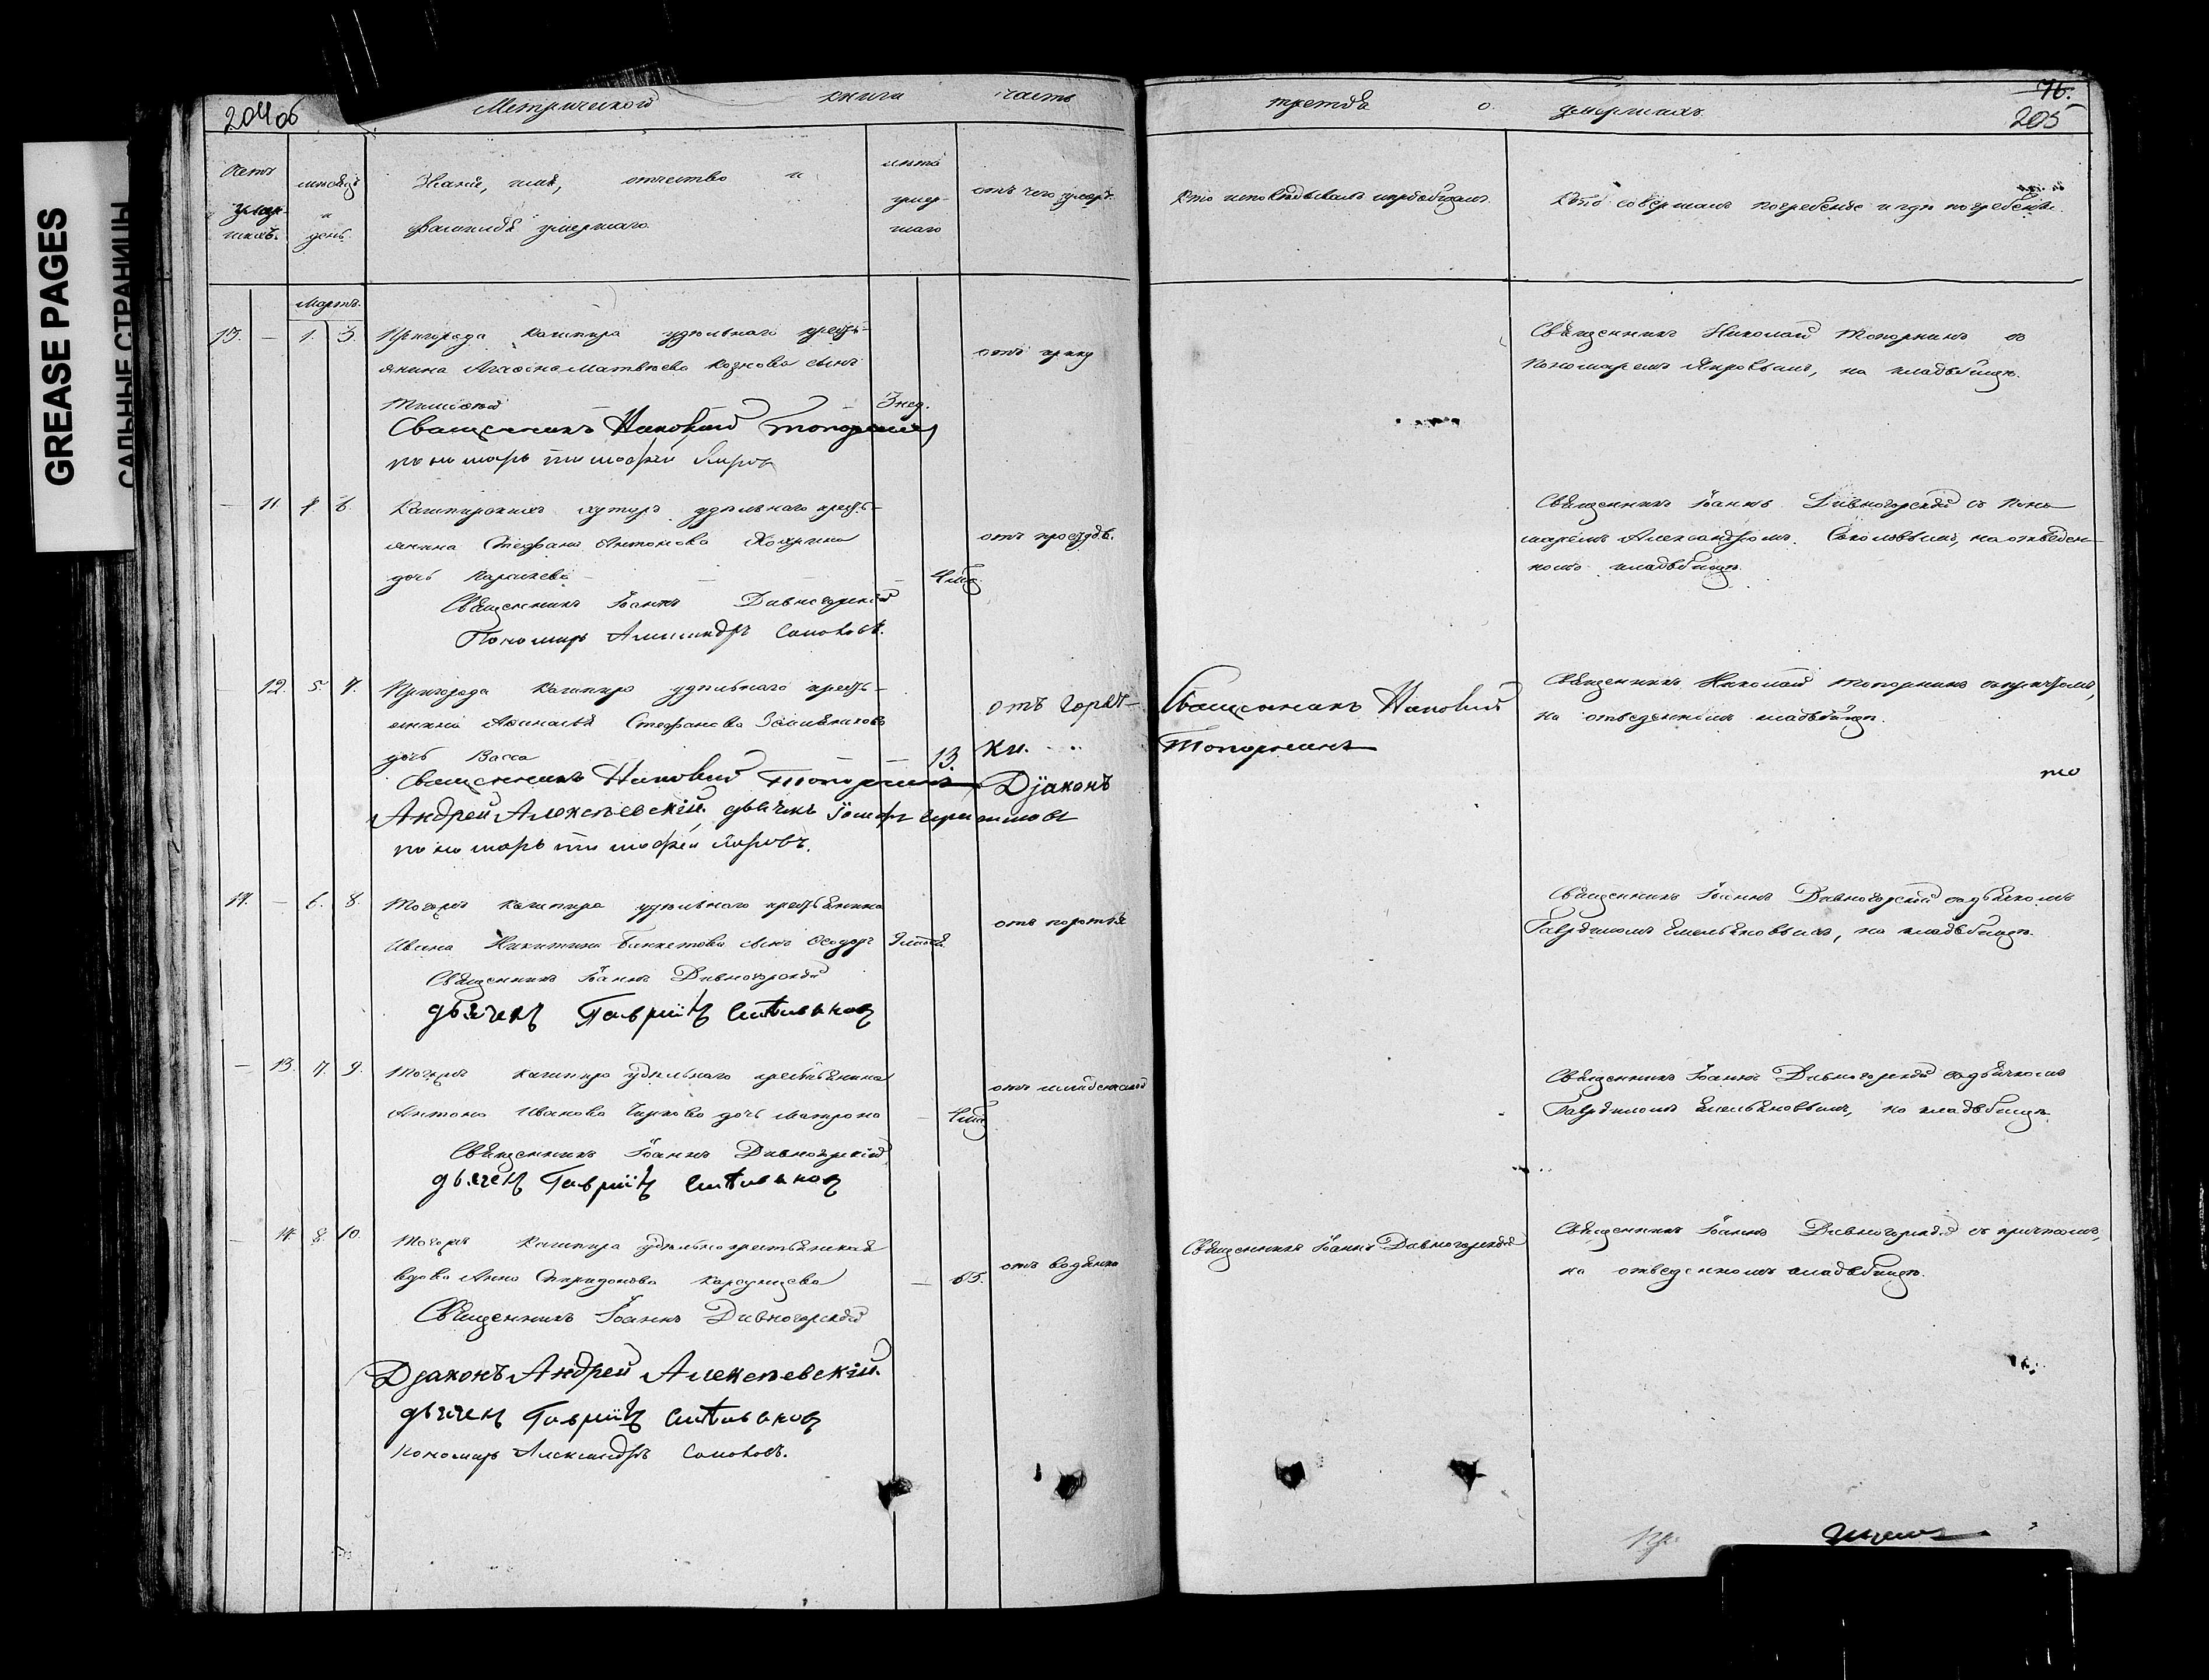 GREASE PAGES
САЛЬНЫЕ СТРАНИЦЫ
204 об
Метрической книги часть
третья о умершихъ.
76.
205
Счетъ умер-
шихъ.
мѣсяцъ
и
день.
Званіе, имя, отчество и
фамилія умершаго.
лѣта
умер-
шаго
отъ чего умеръ.
Кто исповѣдывалъ и пріобщалъ.
Кто совершалъ погребеніе и гдѣ погребены.
Мартъ.
13. — 1. 3. Пригорода Кашпира удѣльнаго кресть-
янина Агафона Матвѣева сынъ
Тимофей 3 нед.
Священникъ Николай Топорнинъ
пономарь Тимофей Яировъ
отъ крику
Священникъ Николай Топорнинъ съ
пономаремъ Яировымъ, на кладбищѣ.
— 11. 6. Кашпирскихъ хуторъ удѣльнаго кресть-
янина Стефана Антонова
дочь Параскева
Священникъ Іоаннъ Дивногорскій
Пономарь Александръ Соколовъ.
отъ простуды.
Священникъ Іоаннъ Дивногорскій съ поно-
маремъ Александромъ Соколовымъ, на отведен-
номъ кладбищѣ.
— 12. 5. 7. Пригорода Кашпира удѣльнаго кресть-
янина Стефанова
дочь Васса — 13.
Священникъ Николай Топорнинъ Діаконъ
Андрей Алексѣевскій. дьячекъ
пономарь Тимофей Яировъ.
отъ горяч-
ки.
Священникъ Николай
Топорнинъ
Священникъ Николай Топорнинъ съ причтомъ,
на отведенномъ кладбищѣ.
14. — 6. 8. Тогожъ Кашпира удѣльнаго крестьянина
Ивана Никитина сынъ Ѳеодоръ
Священникъ Іоаннъ Дивногорскій
дьячекъ Гавріилъ
Священникъ Іоаннъ Дивногорскій съ дьячкомъ
Гавріиломъ Емельяновымъ, на кладбищѣ.
— 13. 7. 9. Тогожъ Кашпира удѣльнаго крестьянина
Антона Иванова дочь Матрона
Священникъ Іоаннъ Дивногорскій
дьячекъ Гавріилъ
отъ младенской
Священникъ Іоаннъ Дивногорскій съ дьячкомъ
Гавріиломъ Емельяновымъ, на кладбищѣ.
— 14. 8. 10. Тогожъ Кашпира удѣльно крестьянская
вдова Анна Спиридонова — 65.
Священникъ Іоаннъ Дивногорскій
Діаконъ Андрей Алексѣевскій.
дьячекъ Гавріилъ
Пономарь Александръ Соколовъ.
отъ водянки
Священникъ Іоаннъ Дивногорскій
Священникъ Іоаннъ Дивногорскій съ причтомъ,
на отведенномъ кладбищѣ.